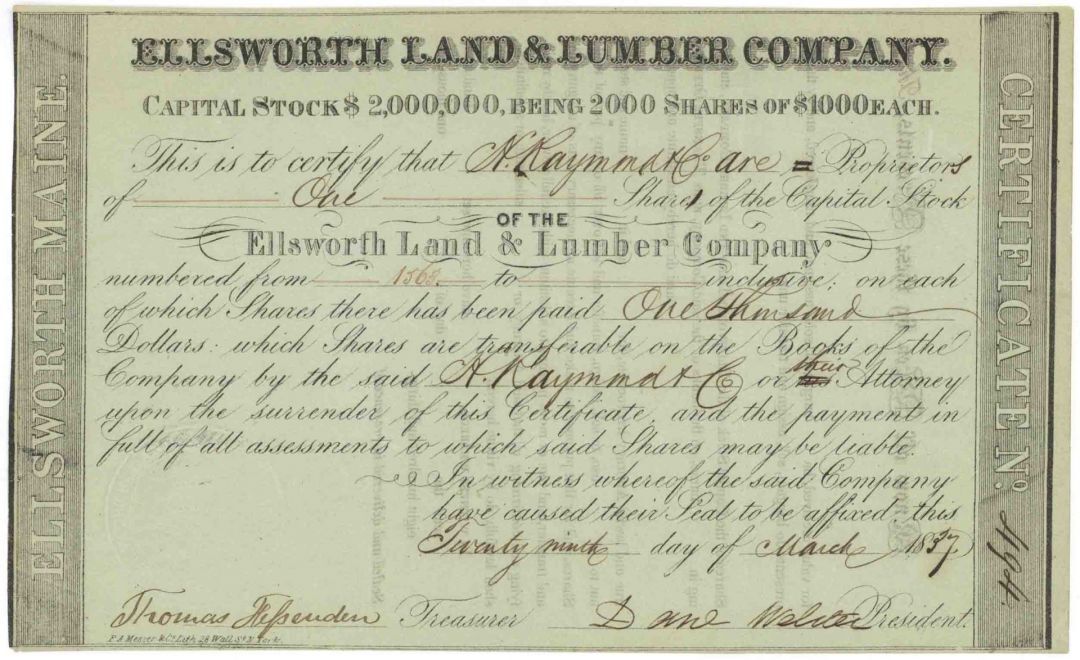 ELLSWORTH LAND & LUMBER COMPANY.
CAPITAL STOCK $ 2,000,000, BEING 2000 SHARES OF $1000 EACH.
This is to certify that A. Raymond & Co are = Proprietors
of One Share of the Capital Stock
OF THE
Ellsworth Land & Lumber Company
numbered from 1563. to inclusive; on each
of which Shares there has been paid One Thousand
Dollars: which Shares are transferable on the Books of the
Company by the said A. Raymond & Co or their Attorney
upon the surrender of this Certificate, and the payment in
full of all assessments to which said Shares may be liable.
In witness whereof the said Company
have caused their Seal to be affixed, this
Twenty ninth day of March 1837.
Thomas Fessenden Treasurer President.
P.A. Mesier & Co. Lith. 28 Wall St. N. York.
ELLSWORTH MAINE.
CERTIFICATE No.